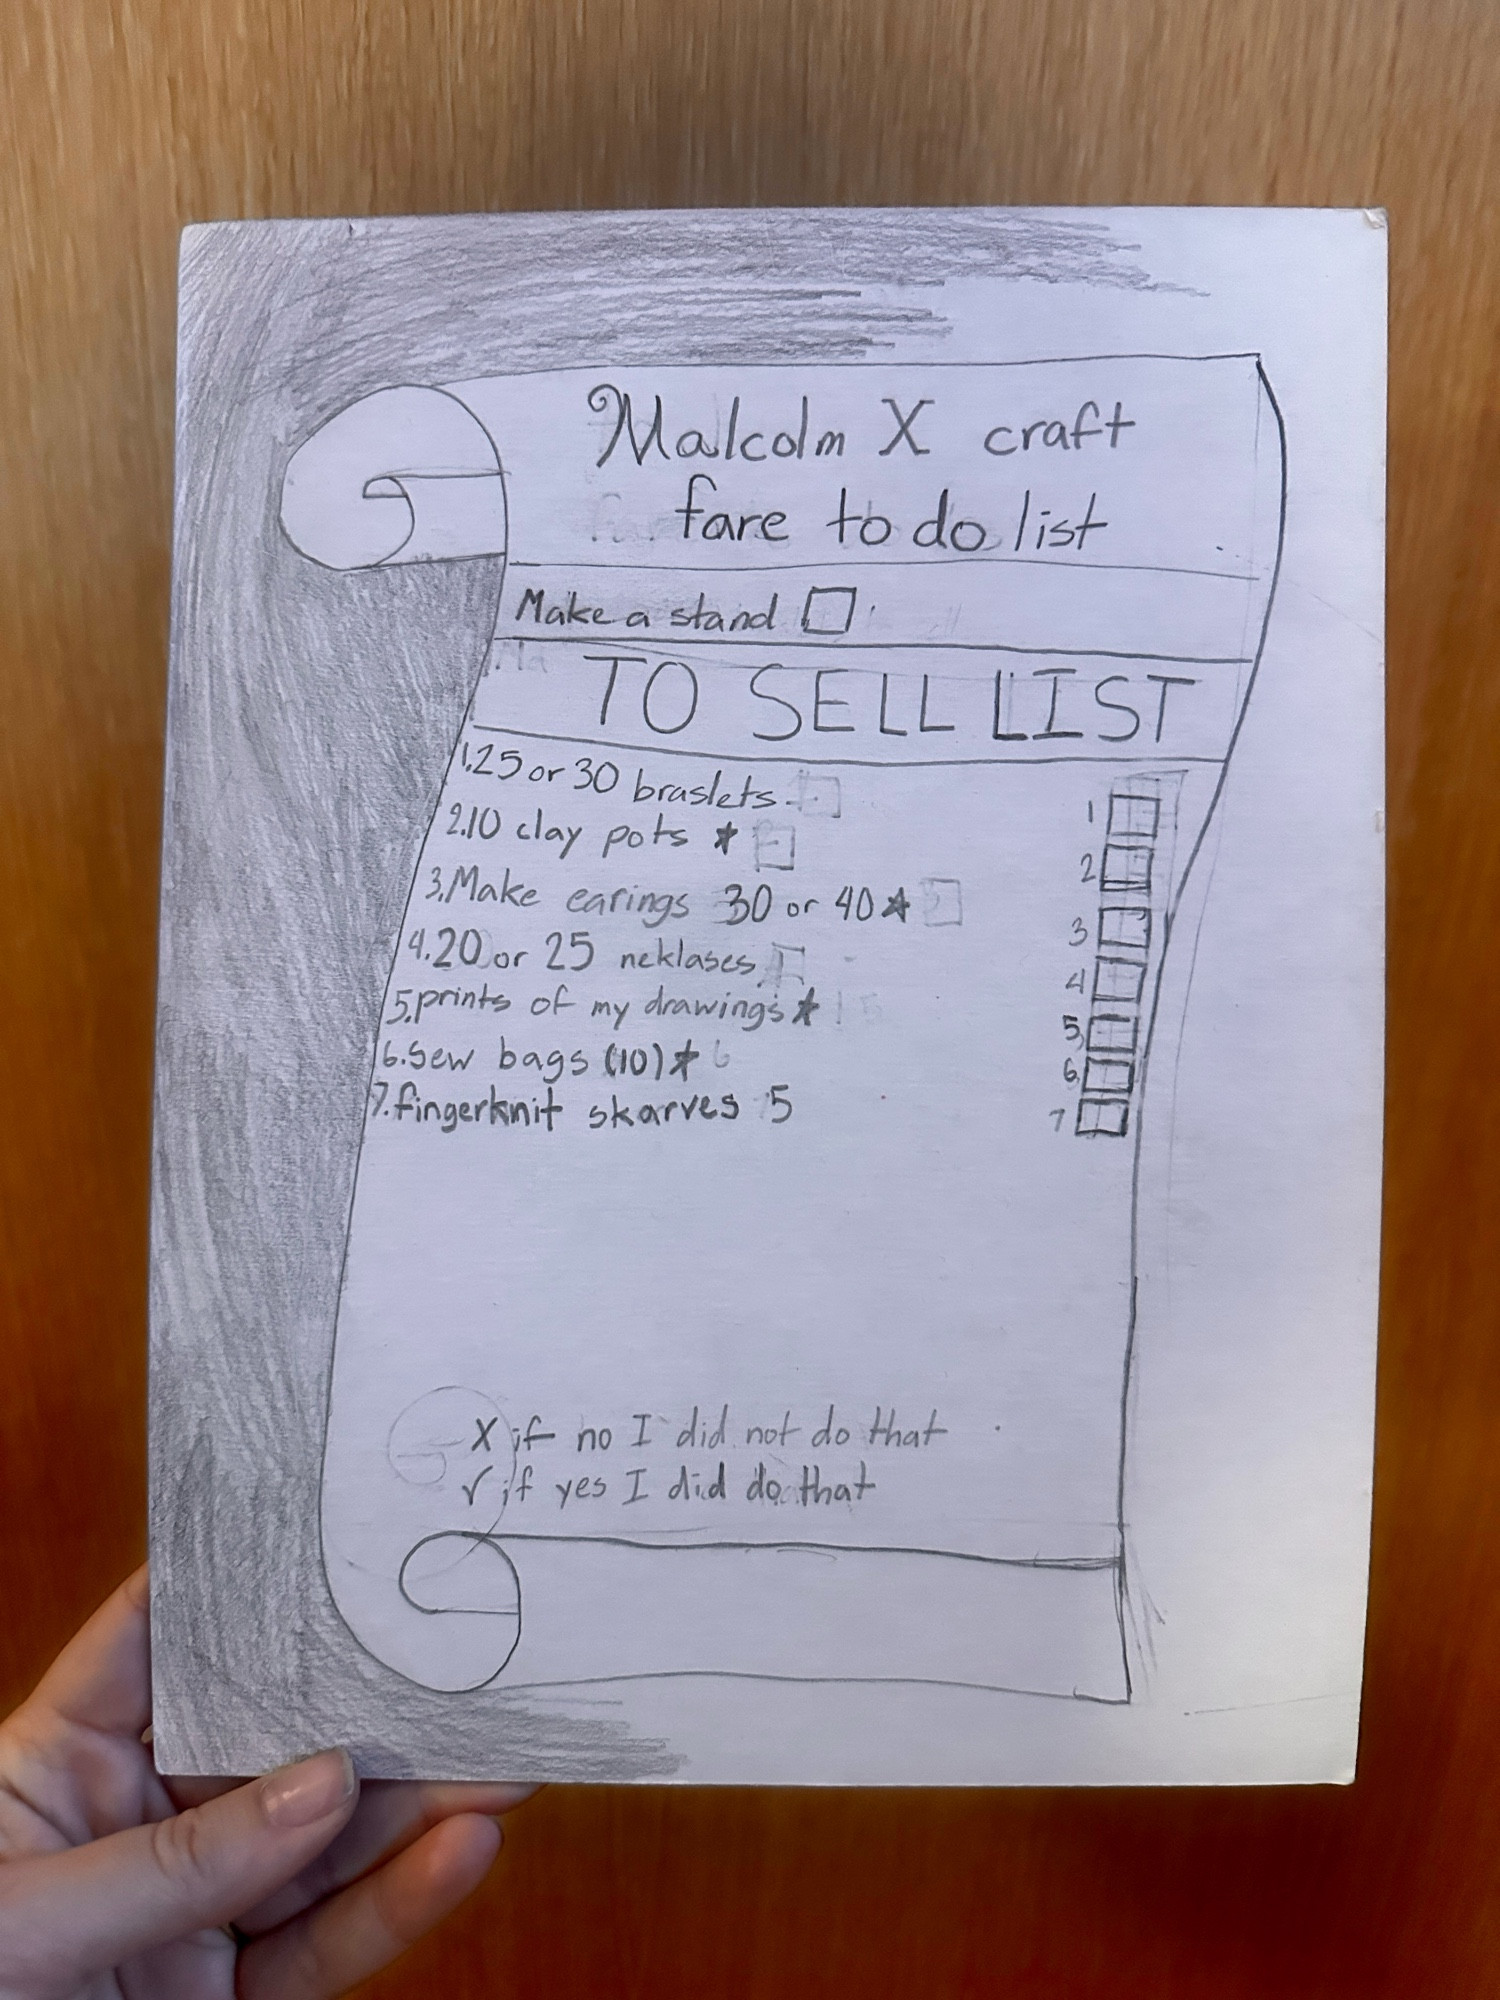 Malcolm X craft
fare to do list
Make a stand
TO SELL LIST
1.25 or 30 braslets
2.10 clay pots ★
3.Make earings 30 or 40 ★
4.20 or 25 neklases
5.prints of my drawings ★
6.sew bags (10) ★
7.fingerknit skarves 5
1
2
3
4
5.
6.
7
X if no I did not do that
✓ if yes I did do that